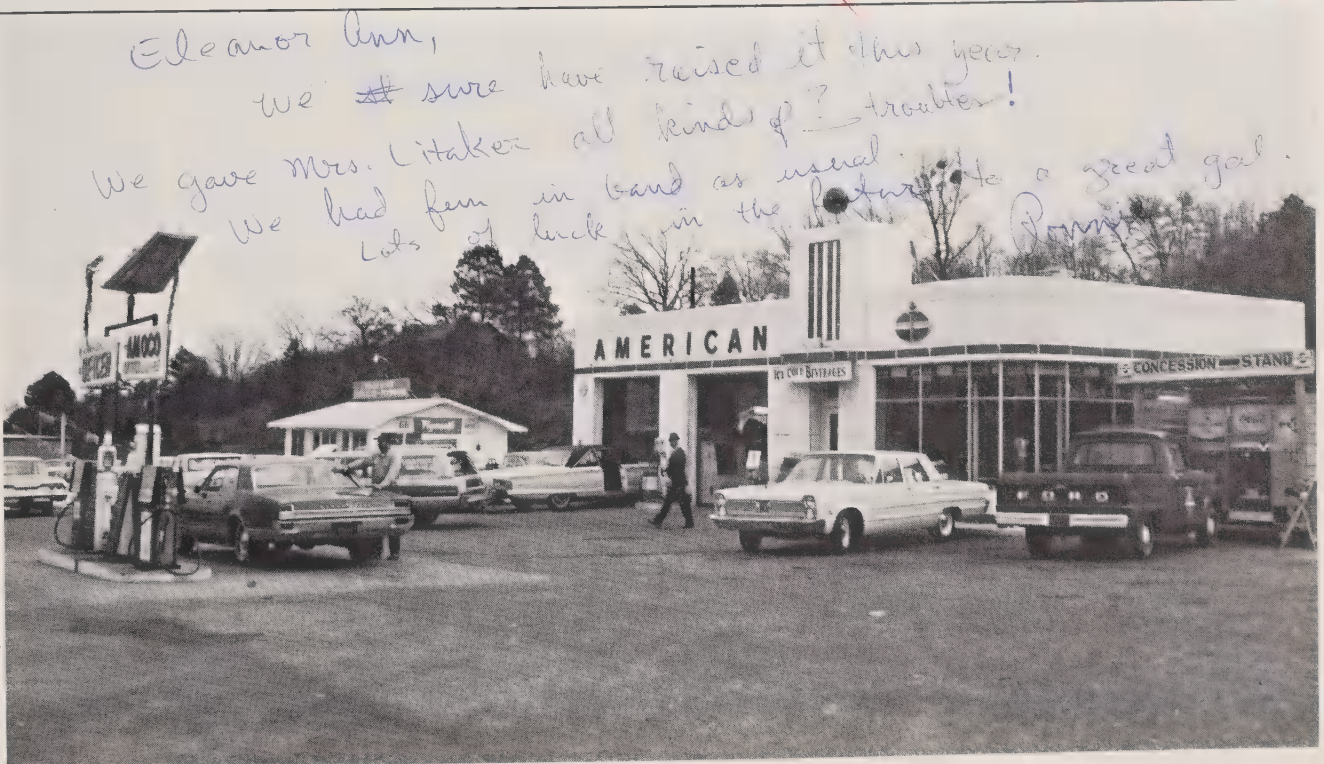 Eleanor Ann,
We sure have raised it this year.
We gave Mrs. Litaker all kind of ? troubles!
We had fun in band as usual.
Lots of luck in the future to a great gal.
Ronnie
AMOCO
AMERICAN
ICE COLD BEVERAGES
CONCESSION STAND
FORD